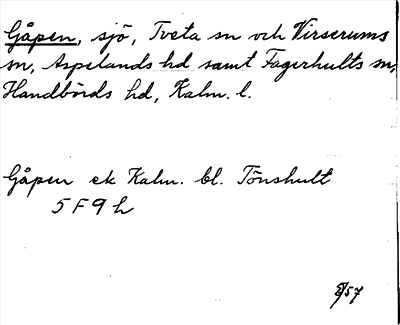 Gåpen, sjö, Tveta sn och Virserums
sn, Aspelands hd samt Fagerhults sn,
Handbörds hd, Kalm. l.
Gåpen ek Kalm. bl. Tönshult
5 F 9 h